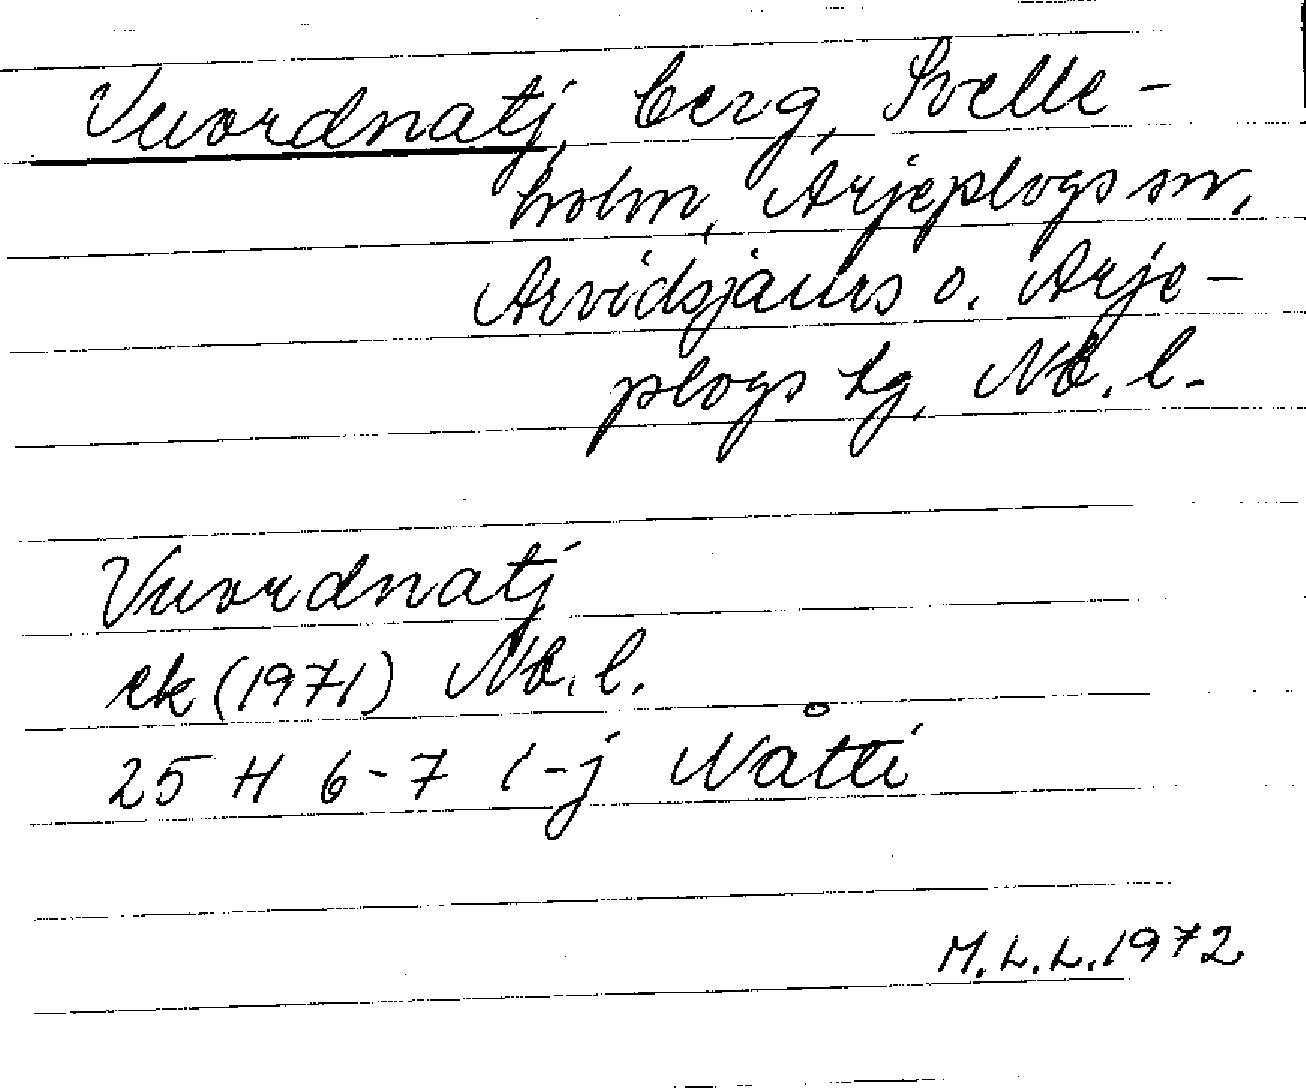 Vuordnatj, berg, Svelle-
holm, Arjeplogs sn,
Arvidsjaurs o. Arje-
plogs tg, Nb. l.
Vuordnatj
ek (1971) Nb. l.
25 H 6-7 i-j Nåtti
M.L.L. 1972